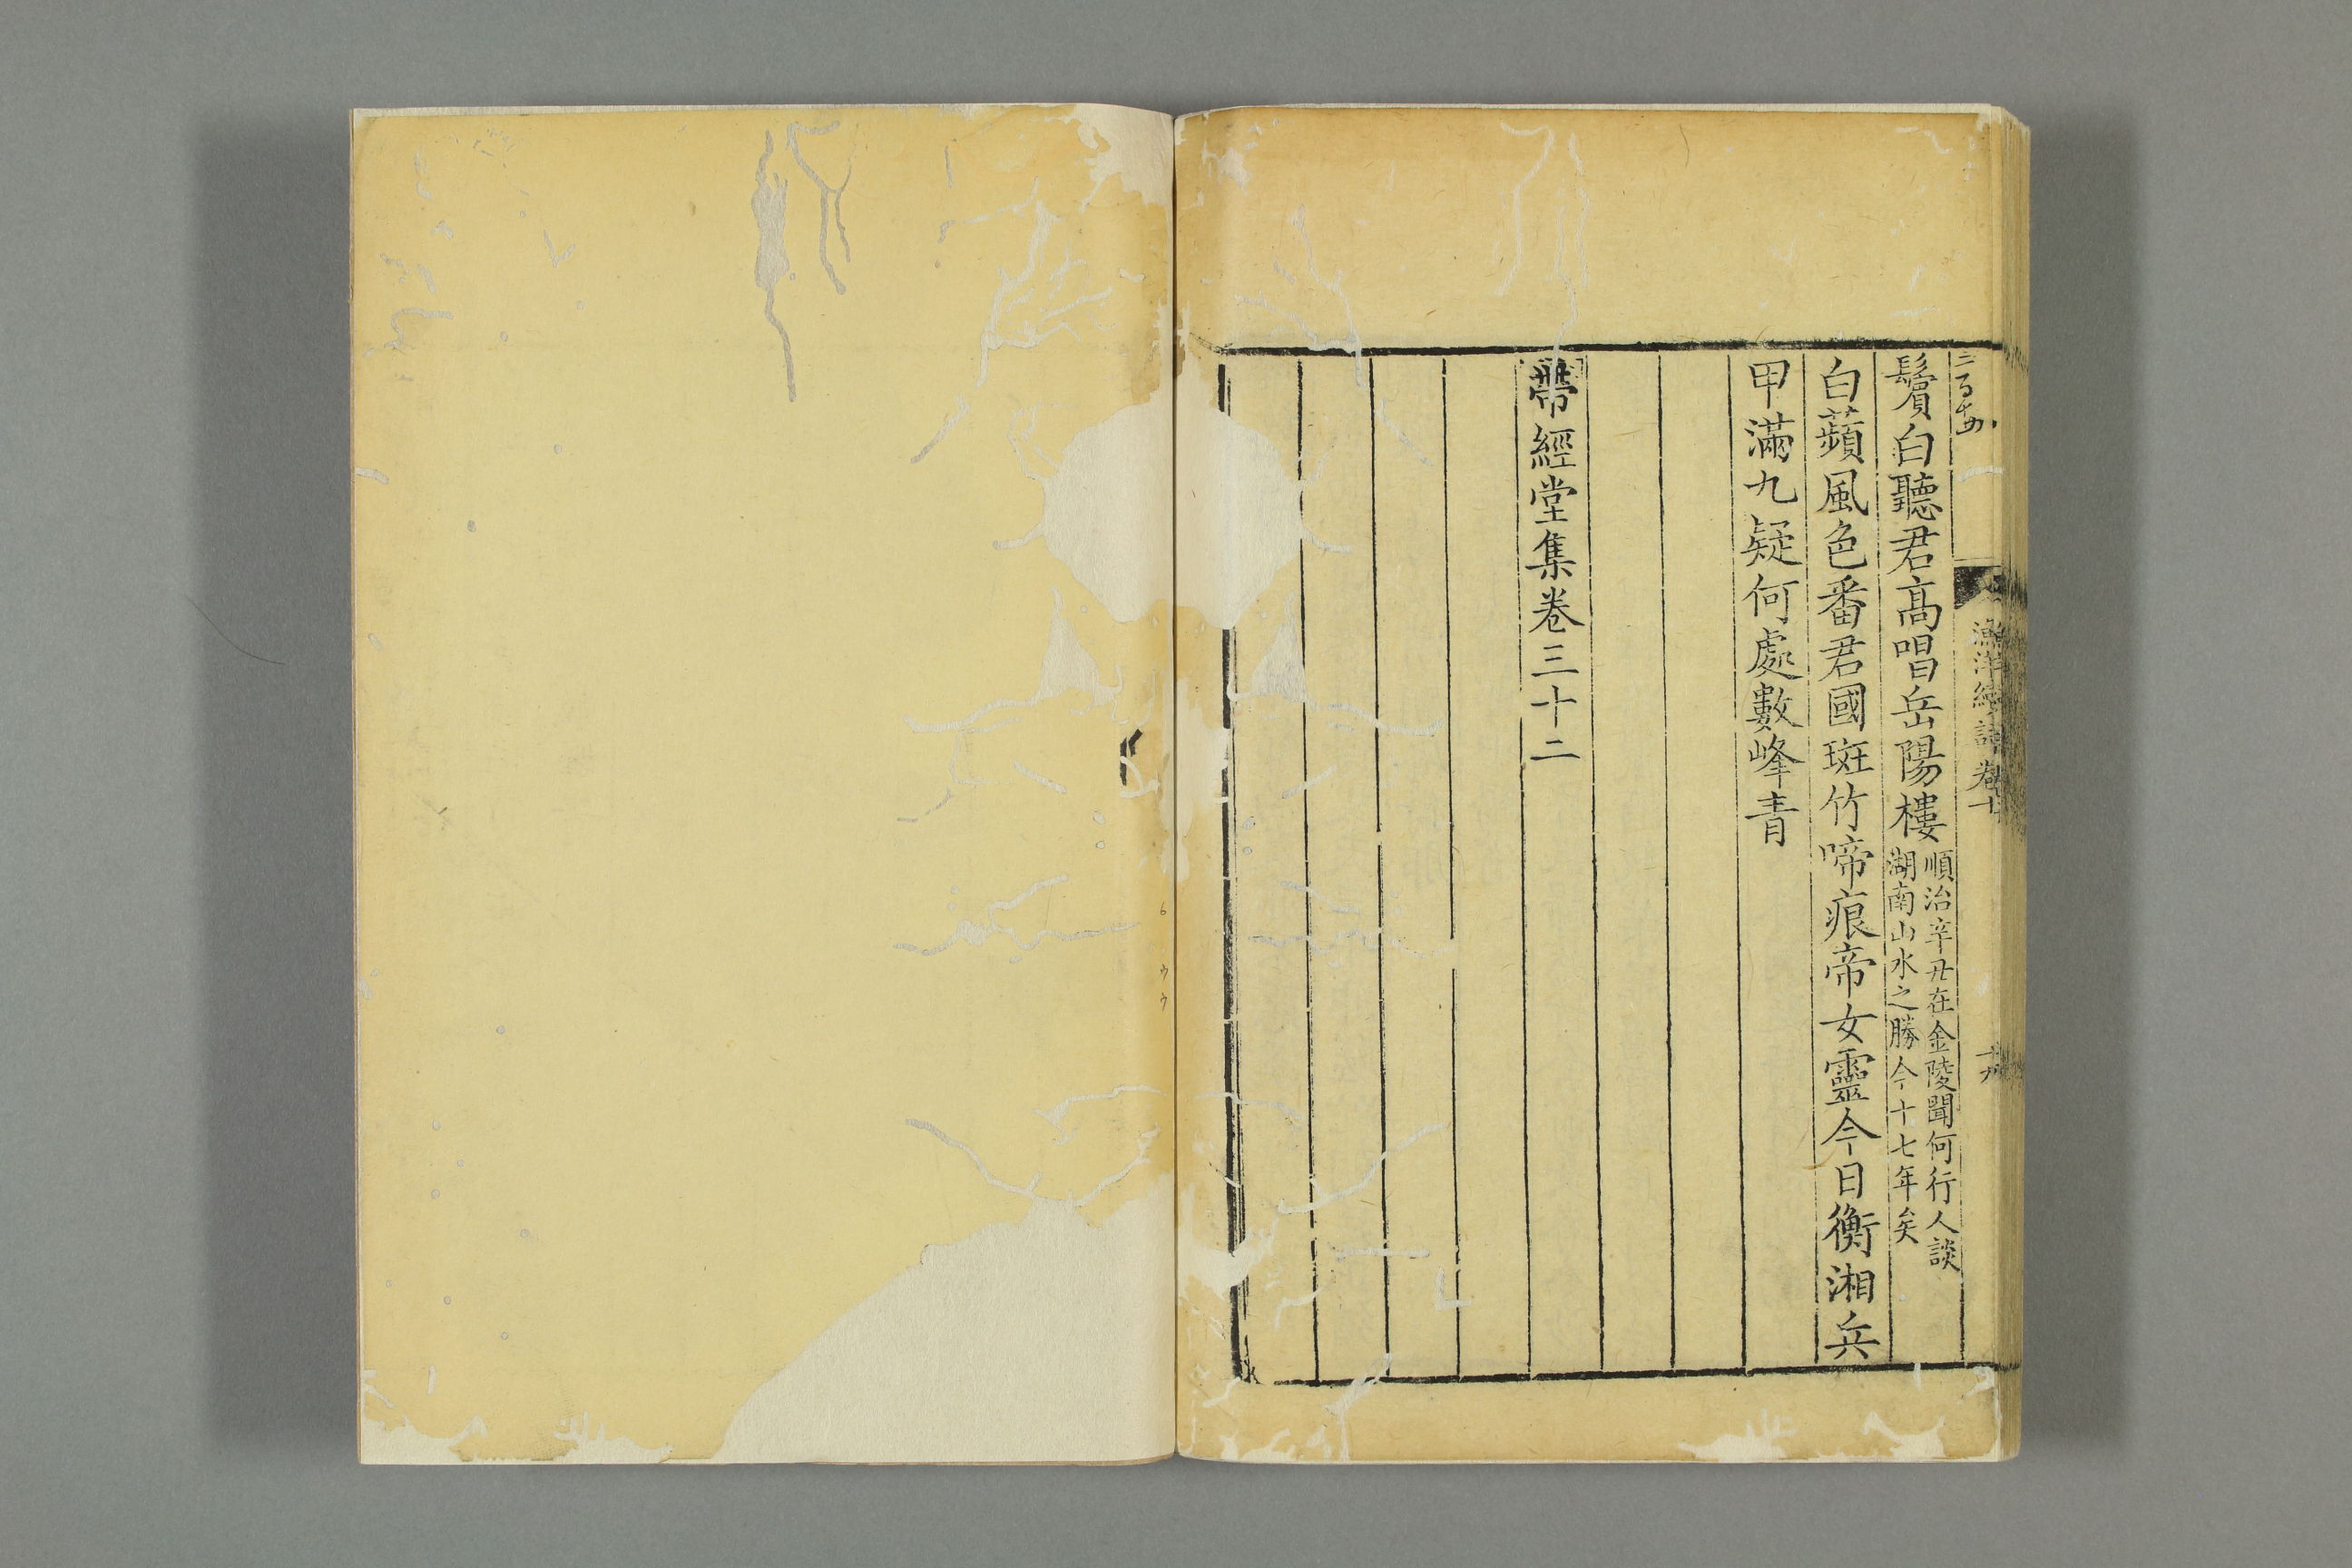 漁洋續詩卷十
鬢白聽君高唱岳陽樓
順治辛丑在金陵聞何行人談
湖南山水之勝今十七年矣
白蘋風色番君國斑竹啼痕帝女靈今日衡湘兵
甲滿九疑何處數峰青
帶經堂集卷三十二